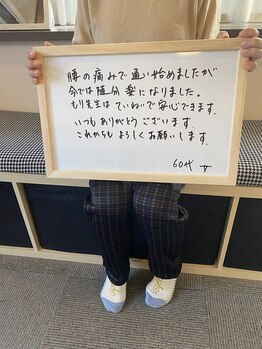 腰の痛みで通い始めましたが
今では随分楽になりました。
もり先生はていねいで安心できます。
いつもありがとうございます。
これからもよろしくお願いします。
60代